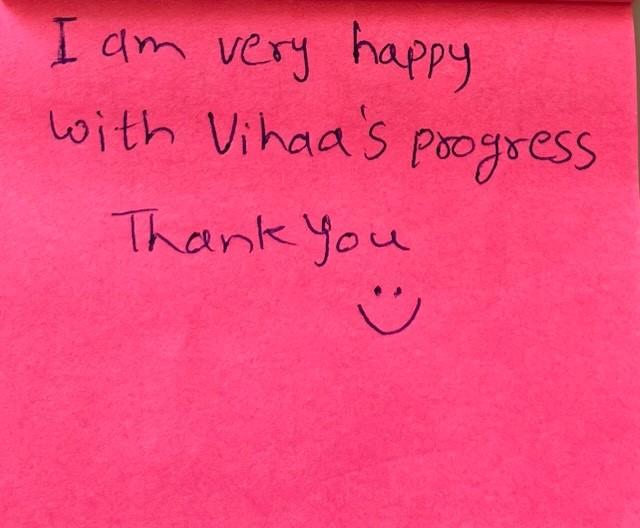 I am very happy
with Vihaa's progress
Thank you